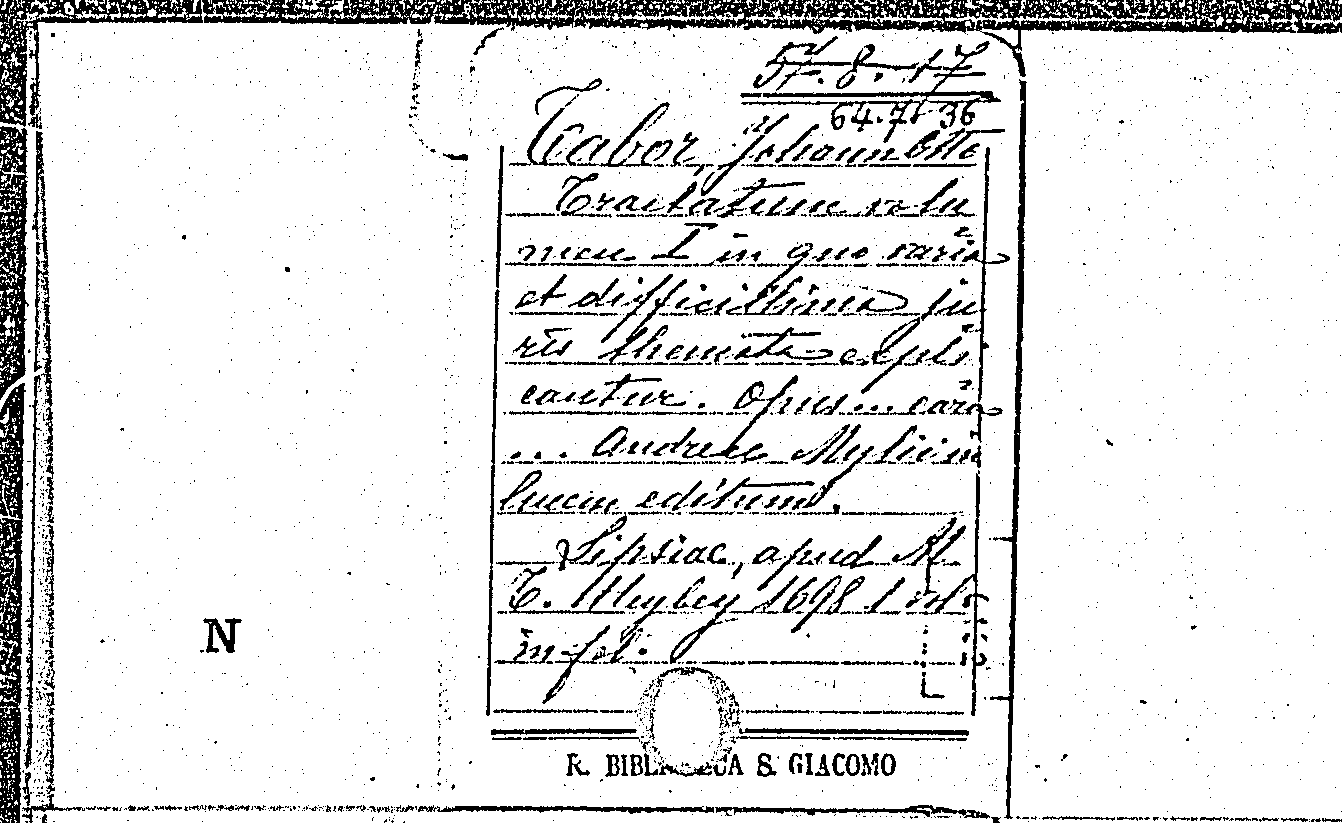 57.8.17
64.7. 36
Tabor, Johann Otto
Tractatum volu
men I in quo varia
et difficillima ju
ris themata expli
cantur. Opus... cura
... Andreae Mylii in
lucem editum.
Lipsiae, apud M
T. Heybey 1698 1 vol.
in fol.
N
R. BIBLIOTECA S. GIACOMO